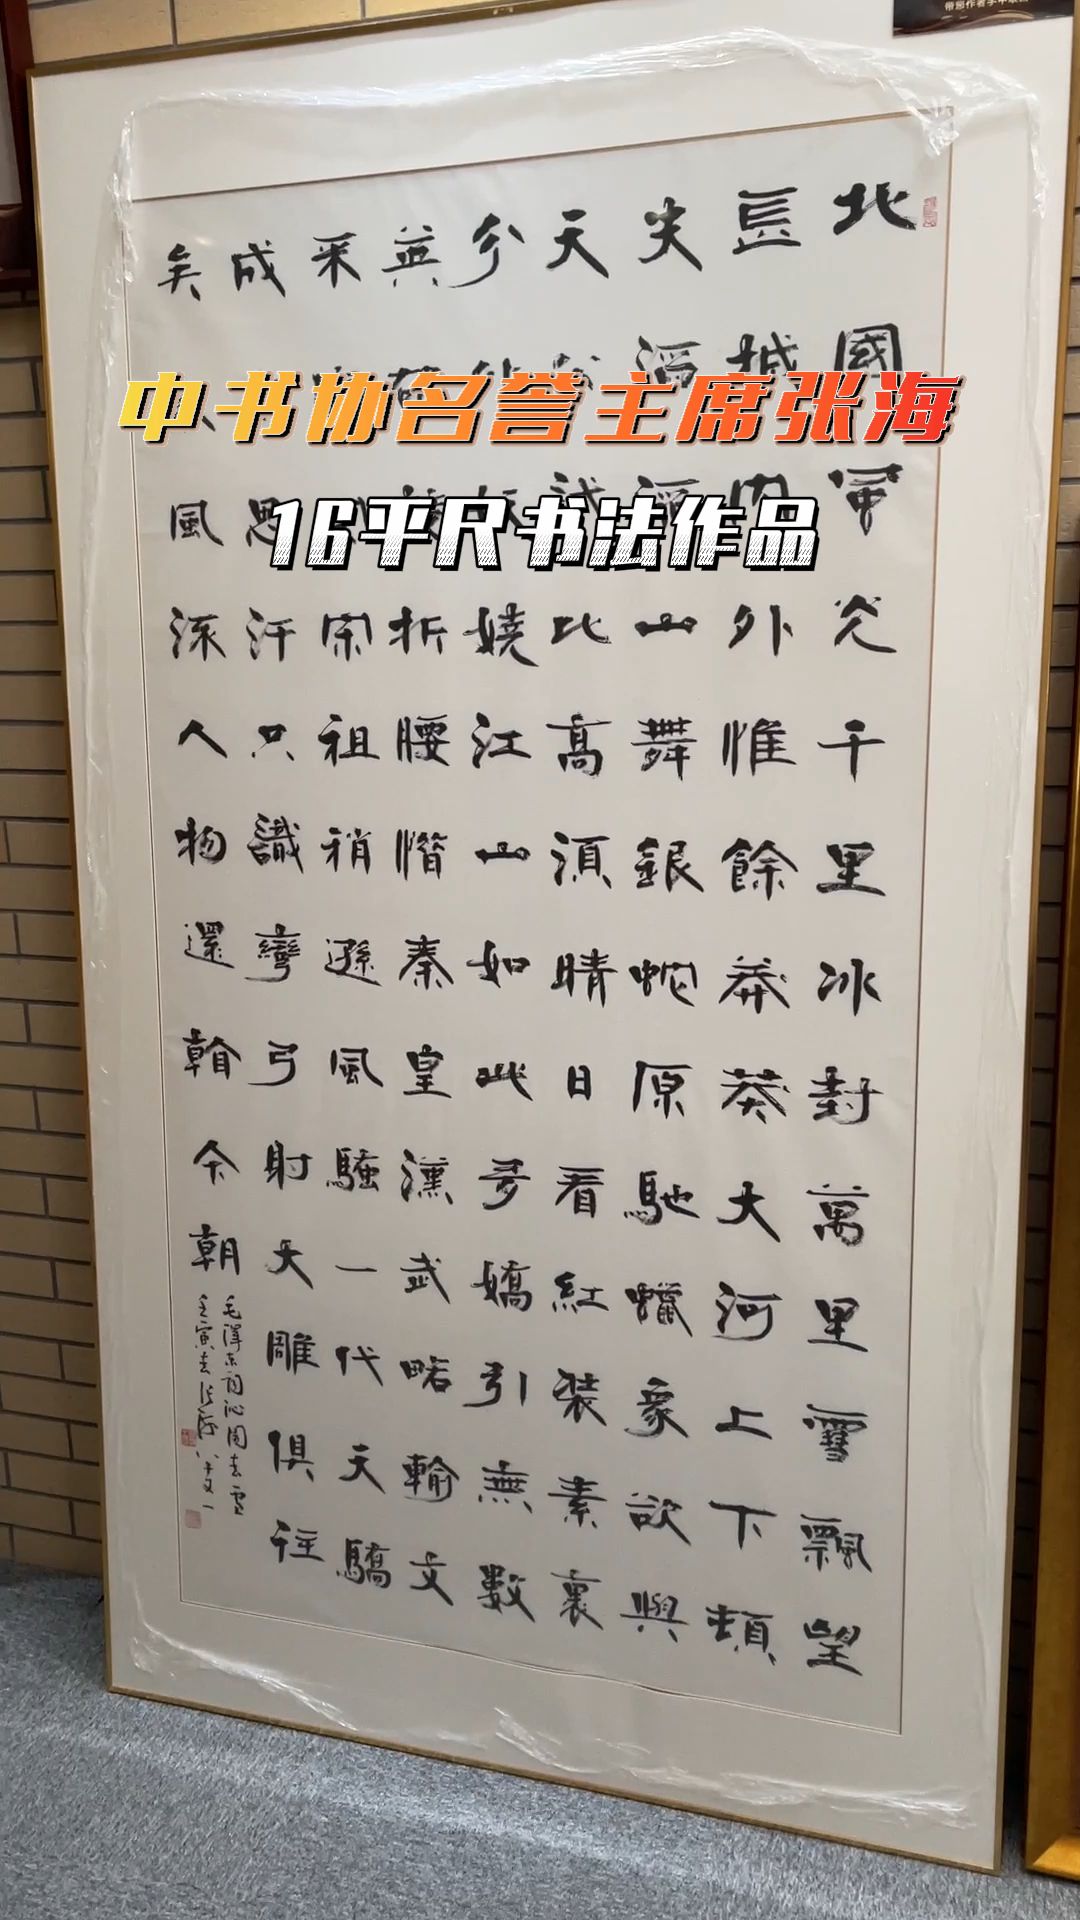 中书协名誉主席张海
16平尺书法作品
北國風光千里冰封萬里雪飄望
長城內外惟餘莽莽大河上下頓
失滔滔山舞銀蛇原馳蠟象欲與
天公試比高須晴日看紅裝素裹
分外妖嬈江山如此多嬌引無數
英雄競折腰惜秦皇漢武略輸文
采宗宋祖稍遜風騷一代天驕
成思汗只識彎弓射大雕俱往
矣風流人物還看今朝
毛澤東詞沁園春雪
壬寅春張海八十又一